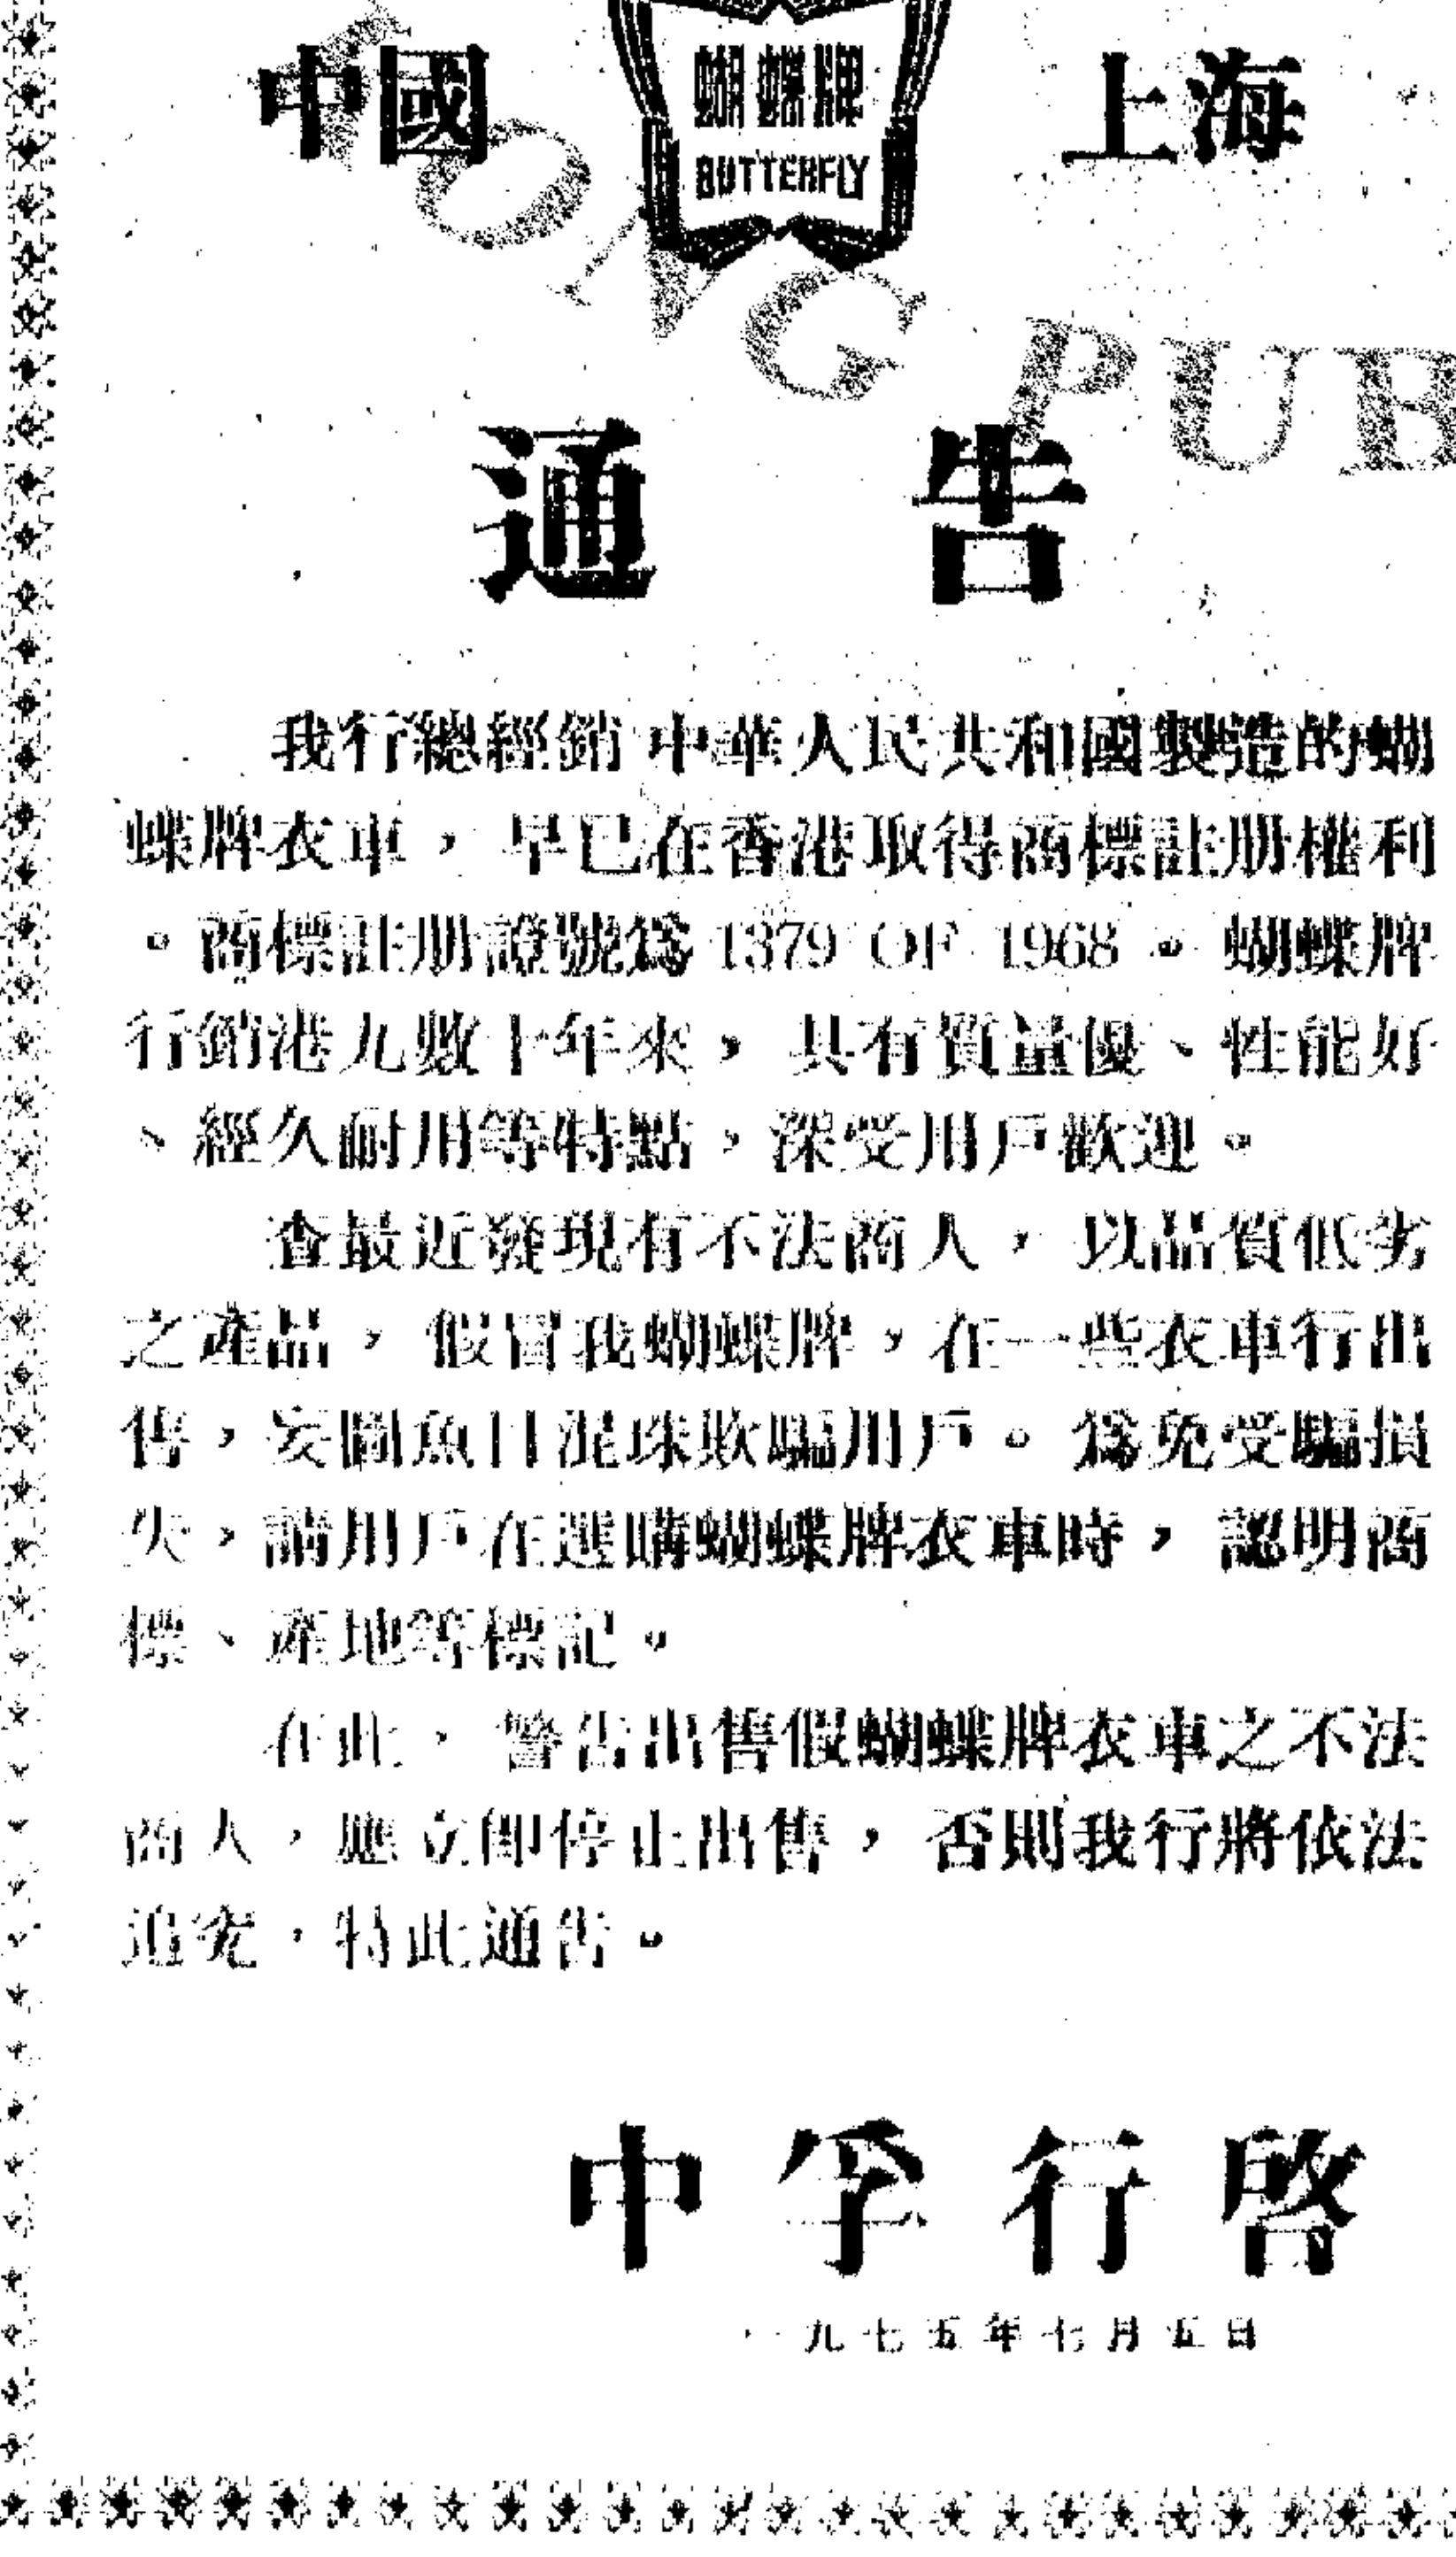 中國 上海
蝴蝶牌
BUTTERFLY
ONG PUB
通告
我行總經銷中華人民共和國製造的蝴
蝶牌衣車,早已在香港取得商標註册權利
。商標註册證號爲 1379 OF 1968。蝴蝶牌
行銷港九數十年來,具有質量優、性能好
、經久耐用等特點,深受用戶歡迎。
查最近發現有不法商人,以品質低劣
之產品,假冒我蝴蝶牌,在一些衣車行出
售,妄圖魚目混珠欺騙用戶。爲免受騙損
失,請用戶在選購蝴蝶牌衣車時,認明商
標、產地等標記。
在此,警告出售假蝴蝶牌衣車之不法
商人,應立即停止出售,否則我行將依法
追究,特此通告。
中孚行啓
一九七五年七月五日